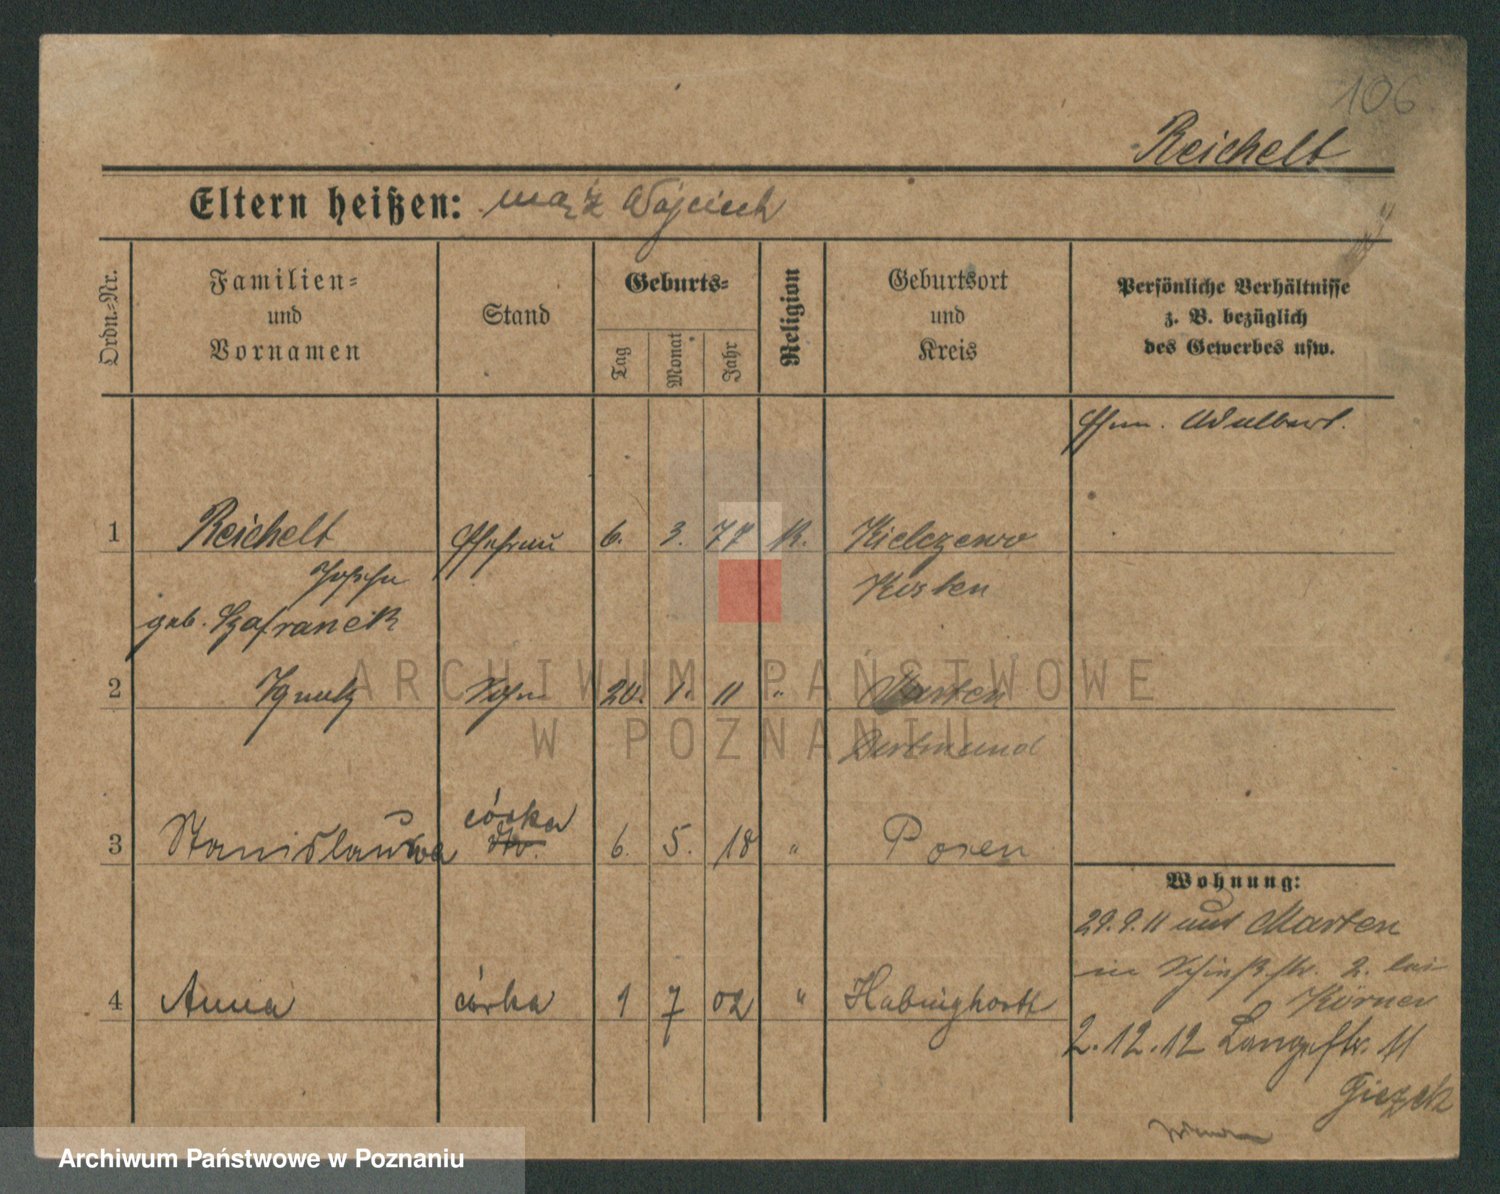 106
Reichelt
Eltern heißen: mąż Wojciech
Ordn.-Nr.
Familien-
und
Vornamen
Stand
Geburts-
Tag
Monat
Jahr
Religion
Geburtsort
und
Kreis
Persönliche Verhältnisse
z. B. bezüglich
des Gewerbes usw.
Ehem. Adalbert.
1 Reichelt Ehefrau 6. 3. 77 K. Kielczewo
Josefa Kosten
geb. Szafraneck
2 Ignatz Sohn 20. 1. 11 " Marten
Dortmund
córka
3 Stanislauwa 6. 5. 18 " Posen
Wohnung:
29.9.11 aus Marten
in 2. bei
4 Anna córka 1 7 02 " Habinghorst
Körner
2.12.12 Langestr. 11
Giezek
ARCHIWUM PAŃSTWOWE
W POZNANIU
Archiwum Państwowe w Poznaniu